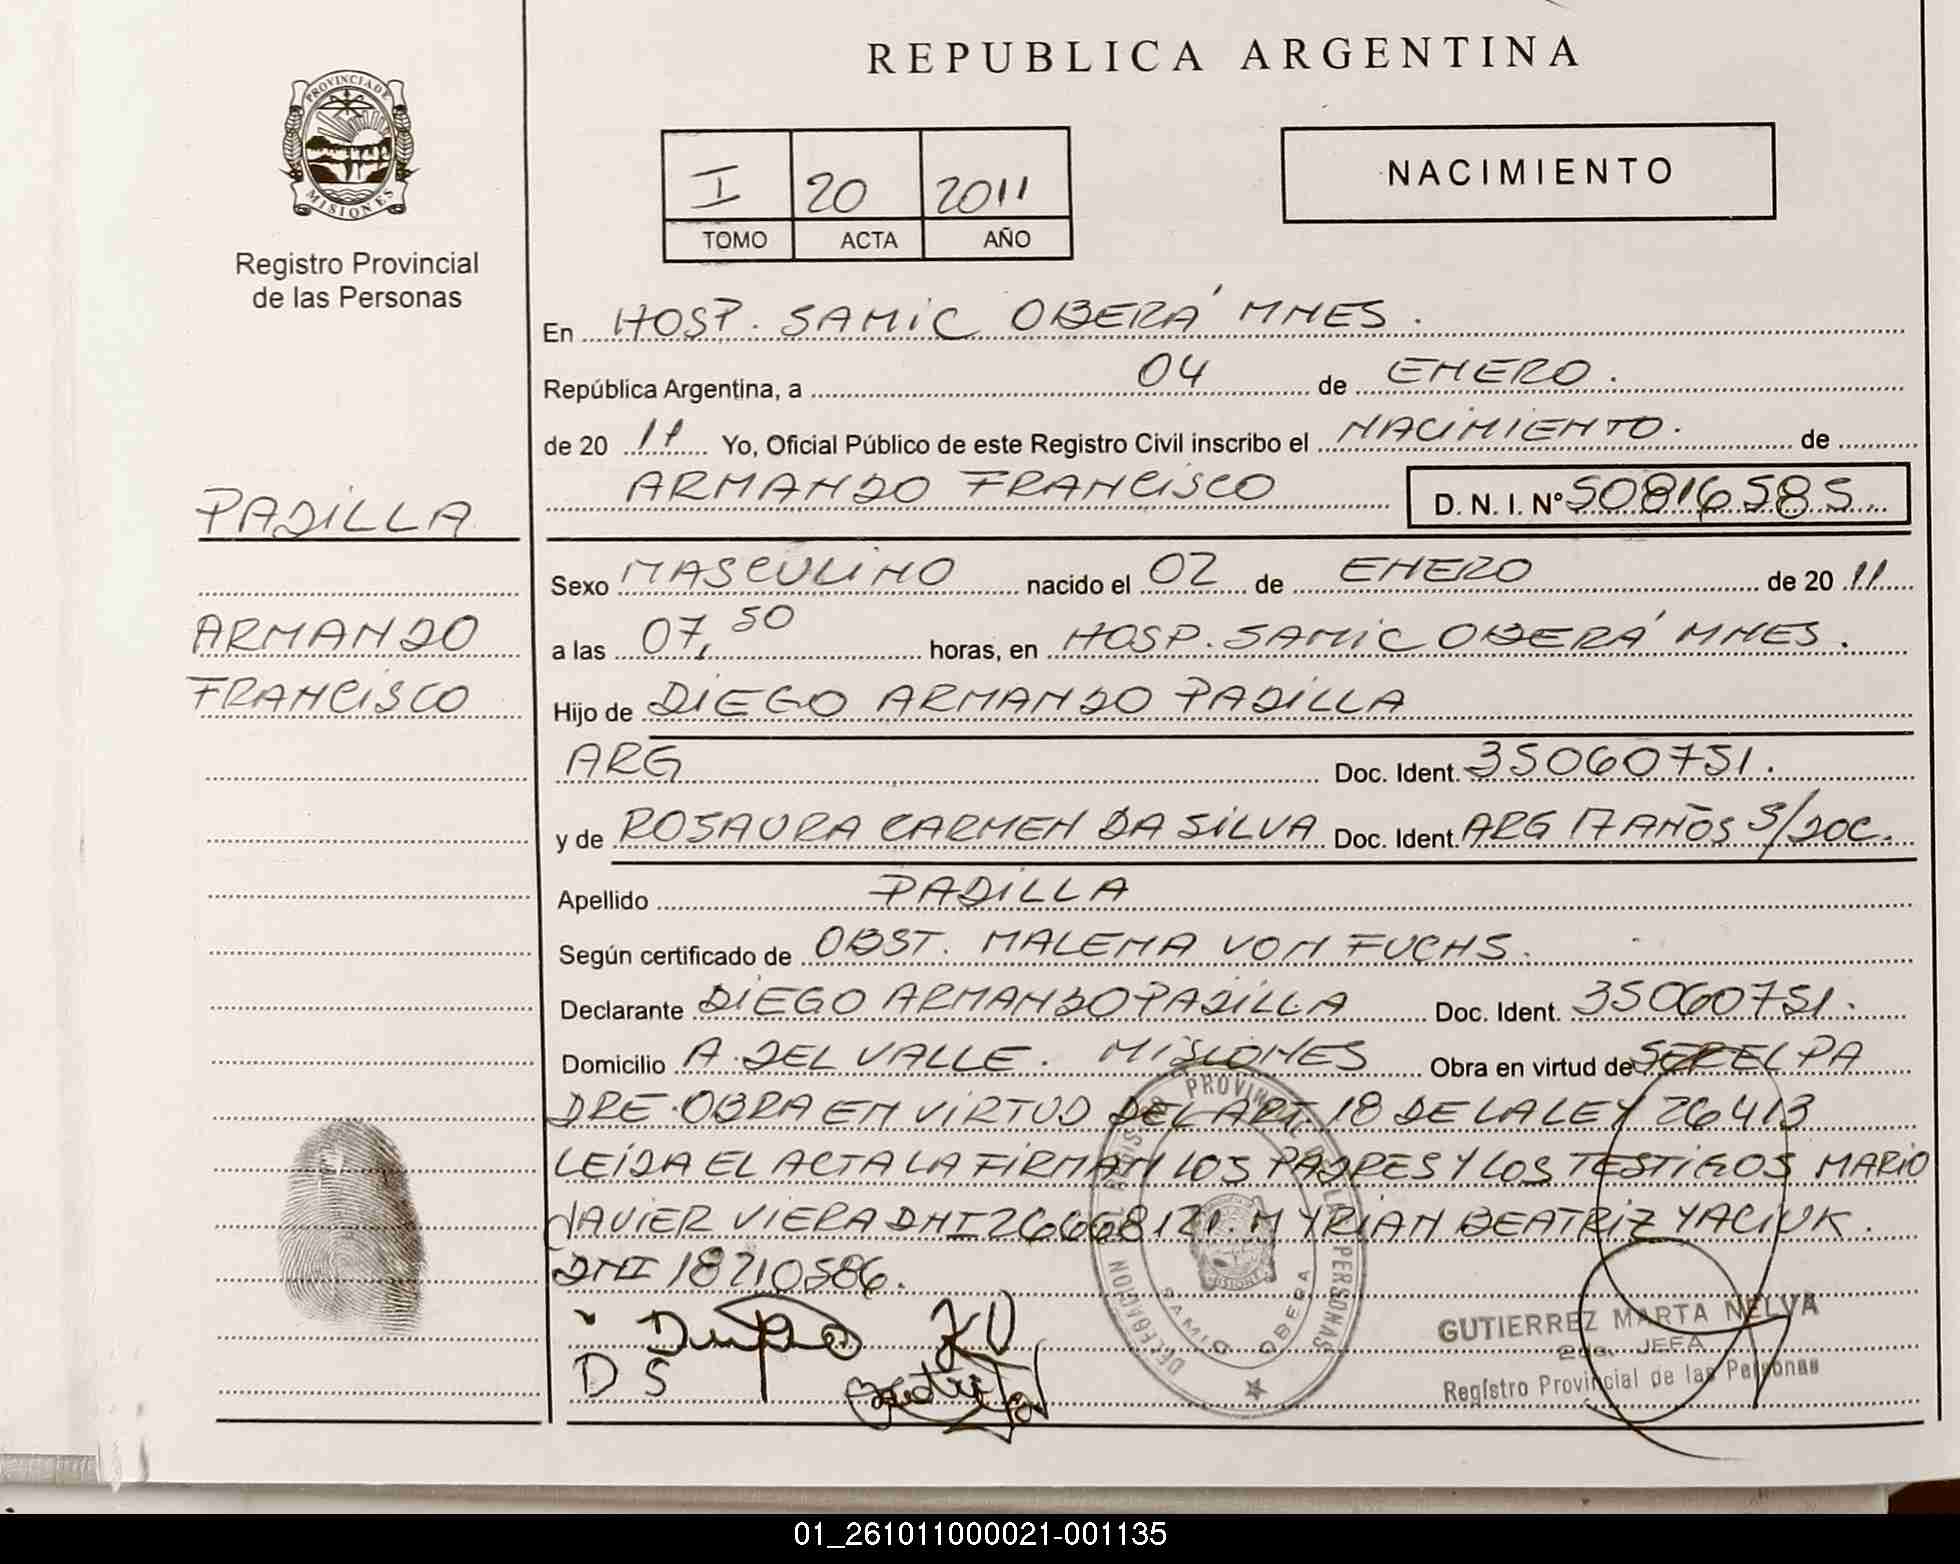 REPUBLICA ARGENTINA
PROVINCIA DE MISIONES
Registro Provincial
de las Personas
I 20 2011
TOMO ACTA AÑO
NACIMIENTO
En HOSP. SAMIC OBERÁ MNES.
República Argentina, a 04 de ENERO.
de 20 11 Yo, Oficial Público de este Registro Civil inscribo el NACIMIENTO. de
ARMANDO FRANCISCO D. N. I. Nº 50816585
PADILLA
ARMANDO
FRANCISCO
Sexo MASCULINO nacido el 02 de ENERO de 20 11
a las 07,50 horas, en HOSP. SAMIC OBERÁ MNES.
Hijo de DIEGO ARMANDO PADILLA
ARG Doc. Ident. 35060751.
y de ROSAURA CARMEN DA SILVA Doc. Ident. ARG 17 AÑOS S/DOC.
Apellido PADILLA
Según certificado de OBST. MALENA VON FUCHS.
Declarante DIEGO ARMANDO PADILLA Doc. Ident. 35060751.
Domicilio A. DEL VALLE. MISIONES Obra en virtud de SER EL PA
DRE. OBRA EN VIRTUD DEL ART. 18 DE LA LEY 26413
LEÍDA EL ACTA LA FIRMAN LOS PADRES Y LOS TESTIGOS MARIO
JAVIER VIERA DNI 26668121. MYRIAN BEATRIZ YACIUK.
DNI 18210586.
D S
REGISTRO PROVINCIAL DE LAS PERSONAS
DELEGACION
SAMIC OBERA
GUTIERREZ MARTA NELVA
2da. JEFA
Registro Provincial de las Personas
01_261011000021-001135